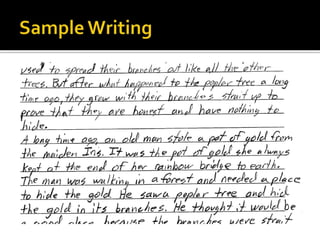 Sample Writing
used to spread their branches out like all the other
trees. But after what happened to the poplar tree a long
time ago, they grow with their branches strait up to
prove that they are honest and have nothing to
hide.
A long time ago, an old man stole a pot of gold from
the maiden Iris. It was the pot of gold she always
kept at the end of her rainbow bridge to earth.
The man was walking in a forest and needed a place
to hide the gold. He saw a poplar tree and hid
the gold in its branches. He thought it would be
a good place because the branches were strait